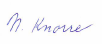 N. Knorre